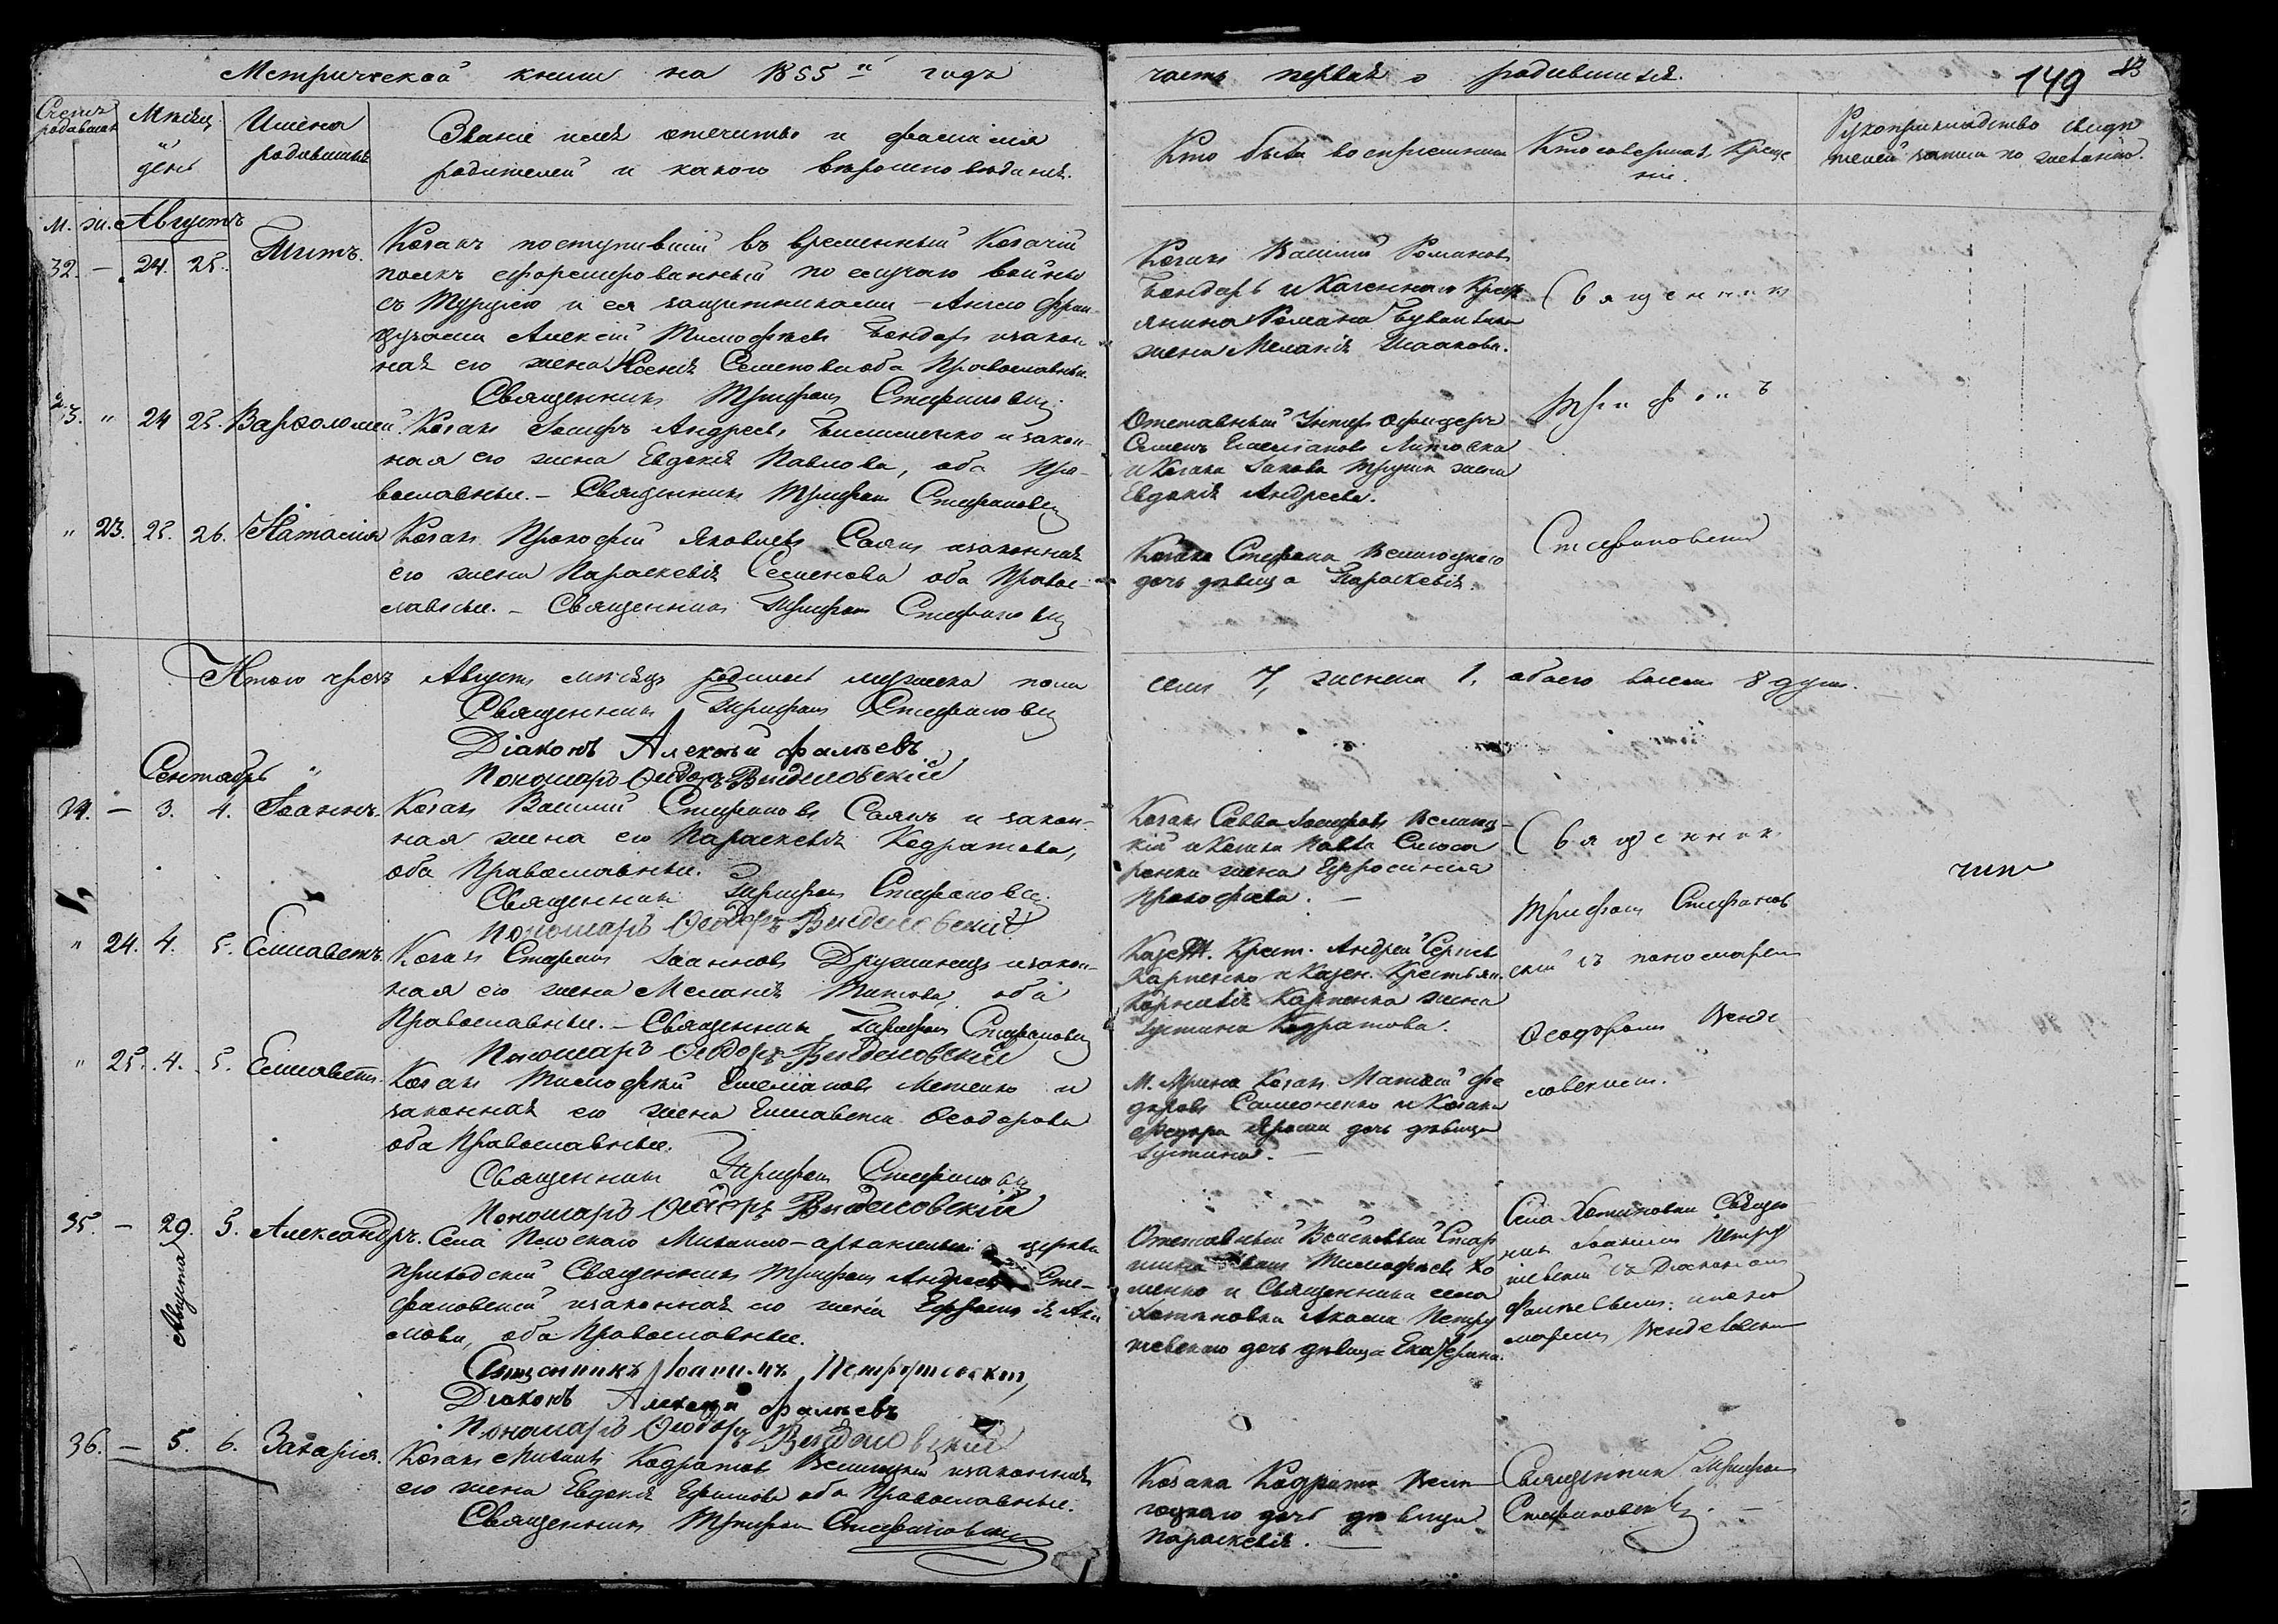 Метрической книги на 1855й годъ
часть первая о родившихся.
149
Счетъ родившихся
Мѣсяц и день
Имена родившихся
Званіе имя отчество и фамилія
родителей и какого вѣроисповѣданія.
Кто былъ воспріемники
Кто совершал Креще
ніе.
Рукоприкладство свидѣ
телей записи по желанію.
м. ж. Августъ
32. – 24. 25. Титъ.
Козакъ поступившій въ временный Козачій
полкъ сформированный по случаю войны
съ Турціею и ея защитниками – Англо Фран-
цузами Алексій Тимофѣевъ Бондарь и закон-
ная его жена Ксенія Семенова оба Православные.
Священникъ Трифонъ Стефановскій
Козакъ Василій Романовъ
Бондарь и Казеннаго Крест
янина Романа
жена Меланія Исаакова.
Священникъ
33. " 24 25. Варфоломей.
Козакъ Іосифъ Андреевъ и закон-
ная его жена Евдокія Павлова, оба Пра-
вославные. – Священникъ Трифонъ Стефановскій
Отставный Унтеръ Офицеръ
Семенъ Емельяновъ
и Козака Іакова жена
Евдокія Андреева.
Трифонъ
" 23. 25. 26. Наталія
Козакъ Прокофій Яковлевъ Саянъ и законная
его жена Параскевія Семенова оба Правос-
лавные. – Священникъ Трифонъ Стефановскій
Козака Стефана Величцкаго
дочь дѣвица Параскевія.
Стефановскій
Итого чрезъ Августъ мѣсяцъ родилось мужеска пола
седм 7, женска 1, обоего всего 8 душъ.
Священникъ Трифонъ Стефановскій
Діаконъ Алексѣй Фальевъ
Пономарь Ѳеодоръ Виделовскій
Сентябрь
34. – 3. 4. Іоаннъ.
Козакъ Василій Стефановъ Саянъ и закон-
ная жена его Параскевія Кодратова,
оба Православные.
Священникъ Трифонъ Стефановскій
Пономарь Ѳеодоръ Виделовскій
Козакъ Савва Іосифовъ
кій и Козака Павла
жена Ефросинія
Прокофіева. –
Священник
Трифонъ Стефанов
" 24. 4. 5. Елисаветъ.
Козакъ Стефанъ Іоанновъ Дружинецъ и закон-
ная его жена Меланія Титова, оба
Православные. – Священникъ Трифонъ Стефановскій
Пономарь Ѳеодоръ Виделовскій
Казен. Крест. Андрей Сергіевъ
Карпенко и Казен. Крестьян.
Карпенка жена
Іустина Кодратова.
скій съ пономаремъ
Ѳеодоромъ
" 25. 4. 5. Елисаветъ.
Козакъ Тимофѣй Емельяновъ и
законная его жена Елисавета Ѳеодорова
оба Православные.
Священникъ Трифонъ Стефановскій
Пономарь Ѳеодоръ Виделовскій
М. Козакъ Матѳій Фе
доровъ Самоненко и Козака
Федора дочь дѣвица
Іустина. –
ловскимъ.
35. – 29. 5. Александръ.
Августа
Села Михаило-архангельскія церкви
приходскій Священникъ Трифонъ Андреевъ Сте-
фановскій и законная его жена
мова, оба Православные.
Священникъ Іоаннъ Петрушевскій,
Діаконъ Алексѣй Фальевъ
Пономарь Ѳеодоръ Виделовскій
Отставный Войсковый Стар
шина Іоаннъ Тимофѣевъ Хо
менко и Священника села
Хотиновки Петру
шевскаго дочь дѣвица Екатерина.
Села Хотиновки Священ
никъ Іоаннъ Петру
шевскій съ Діакономъ
Фальевымъ: и поно
маремъ
36. – 5. 6. Захарія.
Козакъ Михаилъ Кодратовъ и законная
его жена Евдокія Ефимова оба Православные.
Священникъ Трифонъ Стефановскій
Козака Кодрата
дочь дѣвица
Параскевія. –
Священник Трифонъ
Стефановскій. –